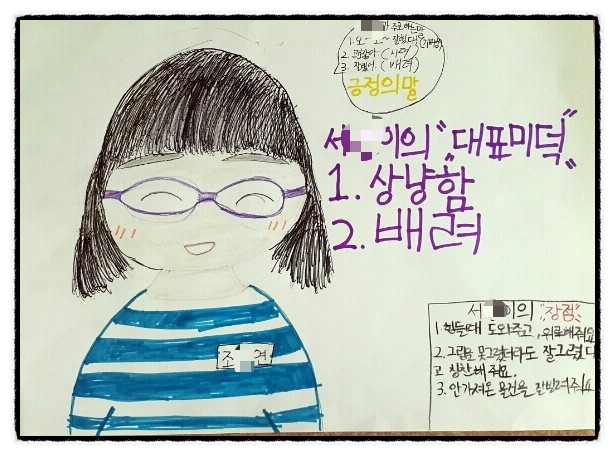 주로하는말
1. 오~ 잘했다.
2. 괜찮아.
3. 잘했어. (배려)
긍정의말
서 이의 "대표미덕"
1. 상냥함
2. 배려
조 견
서 이의 "장점"
1. 힘들때 도와주고, 위로해줘요
2. 그림도 못그렸더라도 잘그렸다
고 칭찬해줘요.
3. 안가져온 물건을 잘빌려주시